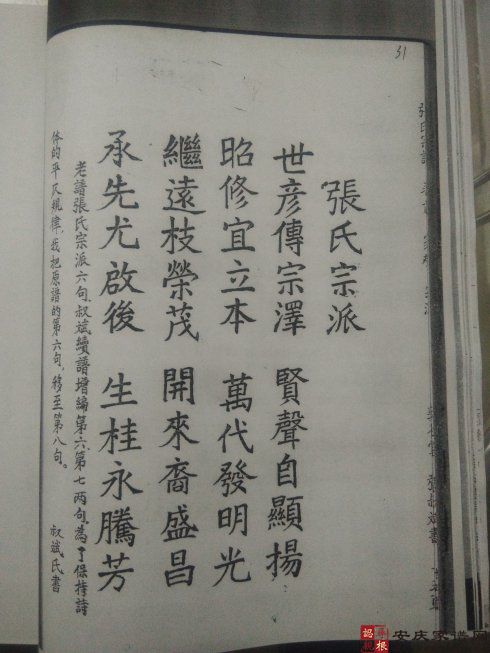 31
張氏宗派
世彦傳宗澤 賢聲自顯揚
昭修宜立本 萬代發明光
繼遠枝榮茂 開來裔盛昌
承先尤啟後 生桂永騰芳
老譜張氏宗派六句,叔斌續譜增編第六、第七两句。為了保持詩
体的平仄規律,我把原譜的第六句,移至第八句。
叔斌氏書
張氏宗譜
安庆家谱网